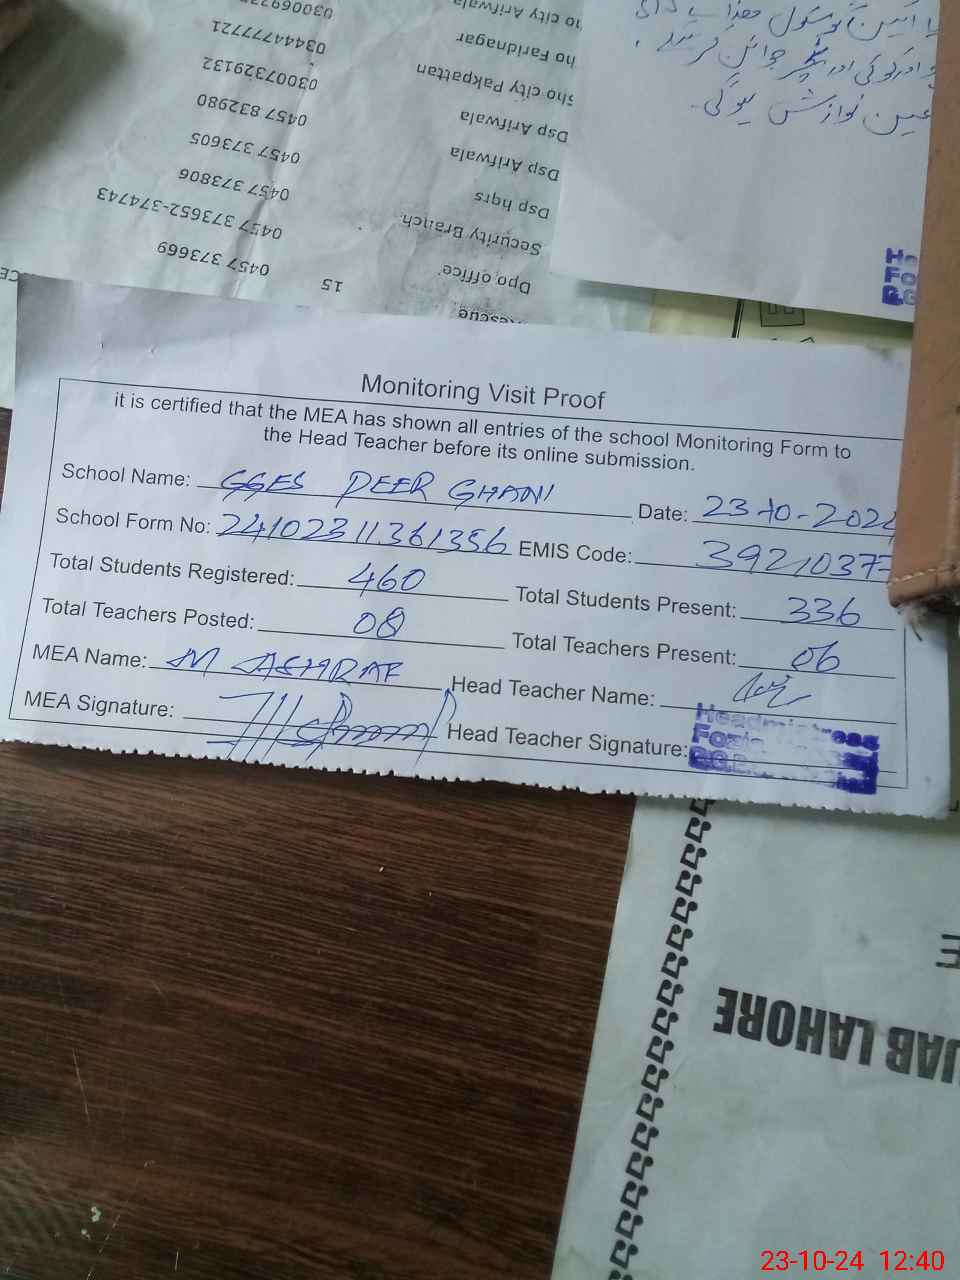 Monitoring Visit Proof
it is certified that the MEA has shown all entries of the school Monitoring Form to
the Head Teacher before its online submission.
School Name: GGES PEER GHANI Date: 23-10-2024
School Form No: 24102311361356 EMIS Code: 3921037
Total Students Registered: 460 Total Students Present: 336
Total Teachers Posted: 08 Total Teachers Present: 06
MEA Name: M ASHRAF Head Teacher Name:
MEA Signature: Head Teacher Signature:
Headmistress
Rescue 15
Dpo office. 0457 373669
Security Branch. 0457 373652-374743
Dsp hqrs 0457 373806
Dsp Arifwala 0457 373605
Dsp Arifwala 0457 832980
sho city Pakpattan 03007329132
ho Faridnagar 03444777721
ho city Arifwala
عین نوازش ہوگی۔
JAB LAHORE
23-10-24 12:40